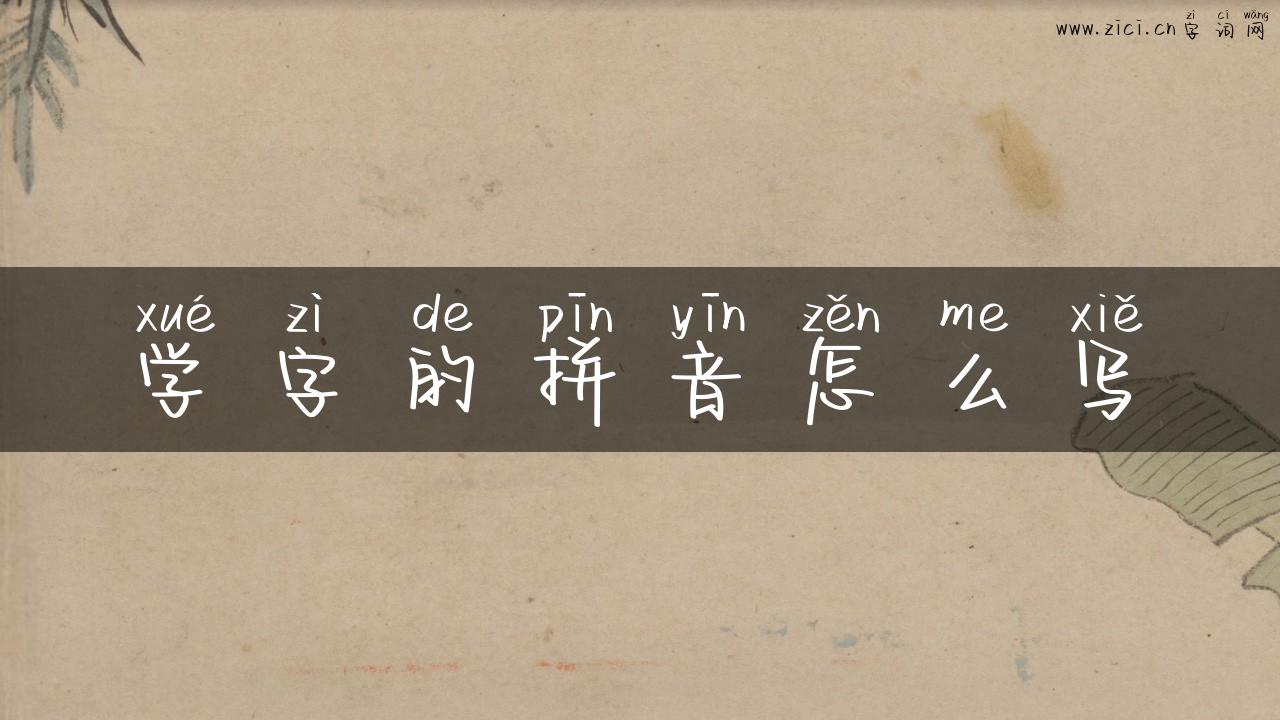 zì cí wǎng
www.zici.cn 字 词 网
xué zì de pīn yīn zěn me xiě
学 字 的 拼 音 怎 么 写